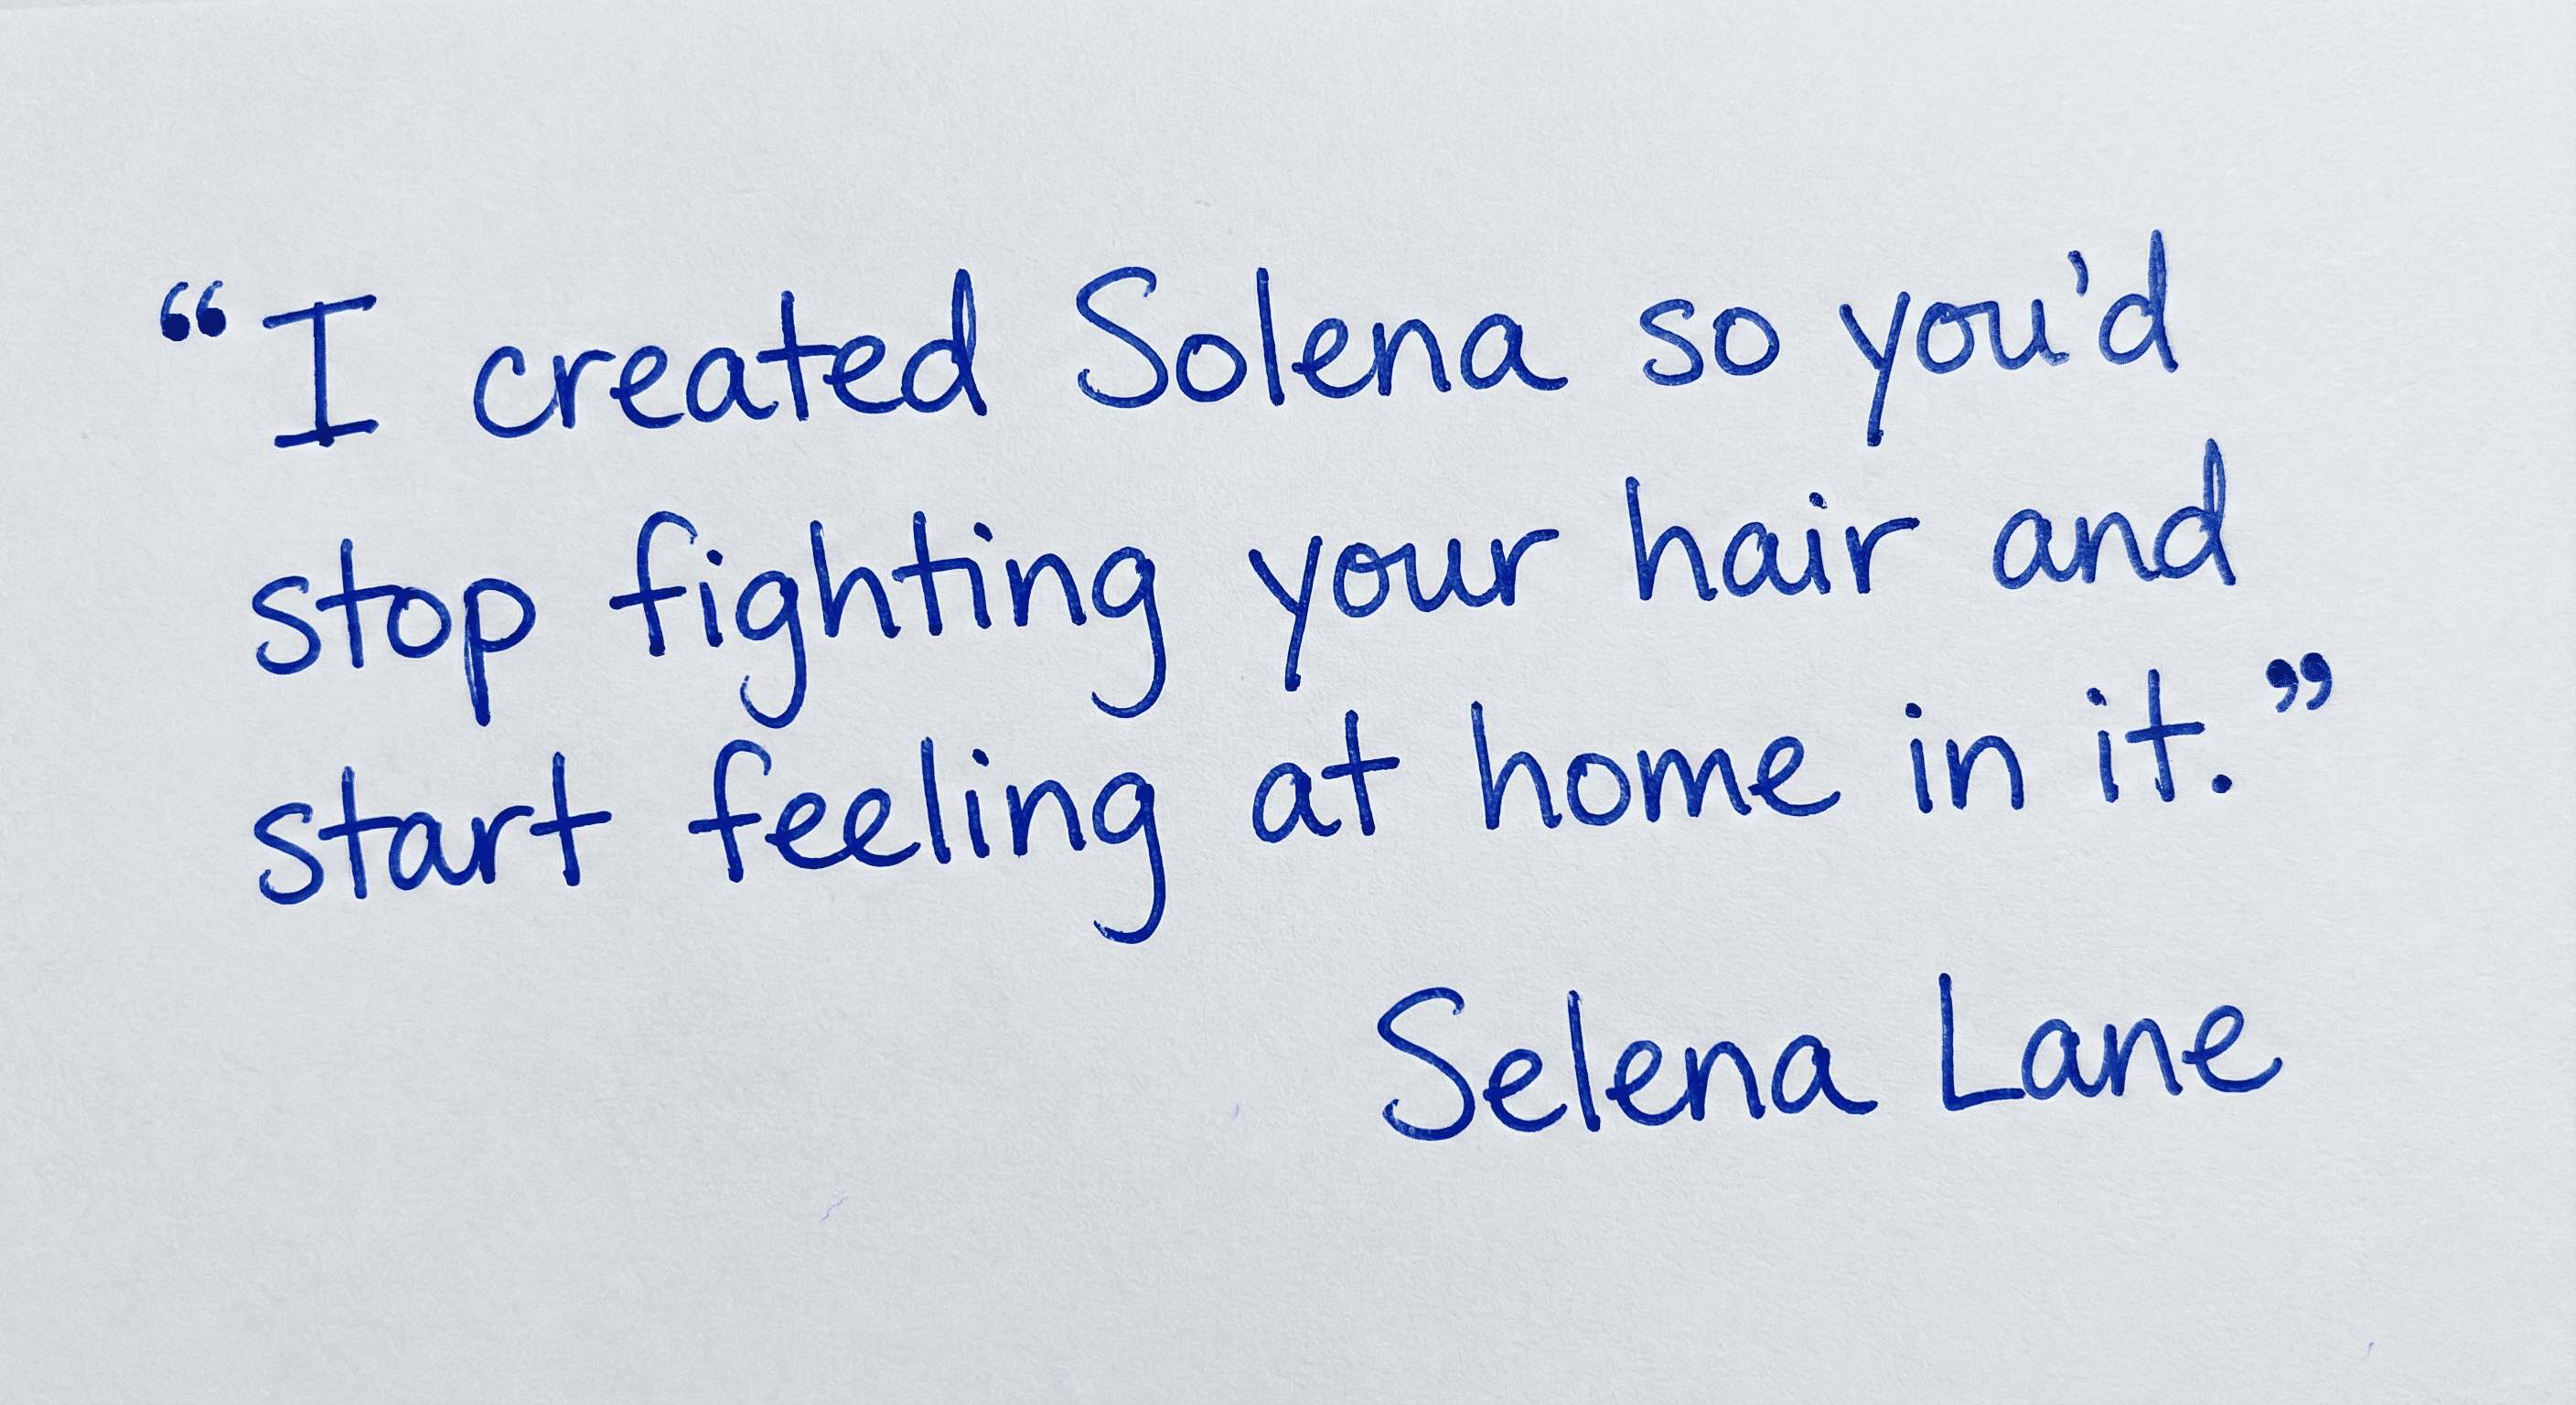 “I created Solena so you'd
stop fighting your hair and
start feeling at home in it.”
Selena Lane